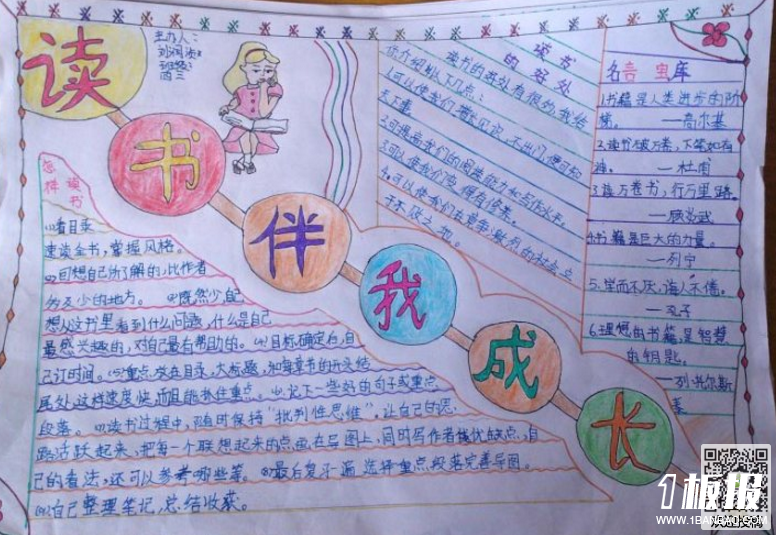 读书伴我成长
主办人：
班级：
四三
读书
的好处
读书的好处有很多,我给
你介绍如下几点：
1.可以使我们增长见识,不出门便可知
天下事。
2.可提高我们的阅读能力和写作水平。
3.可以使我们变得有修养。
4.可以使我们在竞争激烈的社会立
于不败之地。
名言宝库
1.书籍是人类进步的阶
梯。 —高尔基
2.读书破万卷,下笔如有
神。 —杜甫
3.读万卷书,行万里路。
—顾炎武
4.书籍是巨大的力量。
—列宁
5.学而不厌,诲人不倦。
—孔子
6.理想的书籍,是智慧
的钥匙。
—列·托尔斯
泰
怎样读书
(1)看目录
速读全书,掌握风格。
(2)可想自己所了解的,比作者
少的地方。 (3)既然少,自己
想从这书里看到什么问题,什么是自己
最感兴趣的,对自己最有帮助的。(4)目标确定后,自
己订时间。(5)重点放在目录、大标题,和每章节的开头结
尾处,这样速度快,而且能抓住重点。(6)记下一些好的句子或重点
段落。 (7)读书过程中,随时保持"批判性思维",让自己的思
路活跃起来,把每一个联想起来的点画在导图上,同时写作者优缺点,自
己的看法,还可以参考哪些等。(8)最后复习一遍 选择重点段落完善导图。
(9)自己整理笔记,总结收获。
1板报
WWW.1BANBAO.COM
欢迎投稿